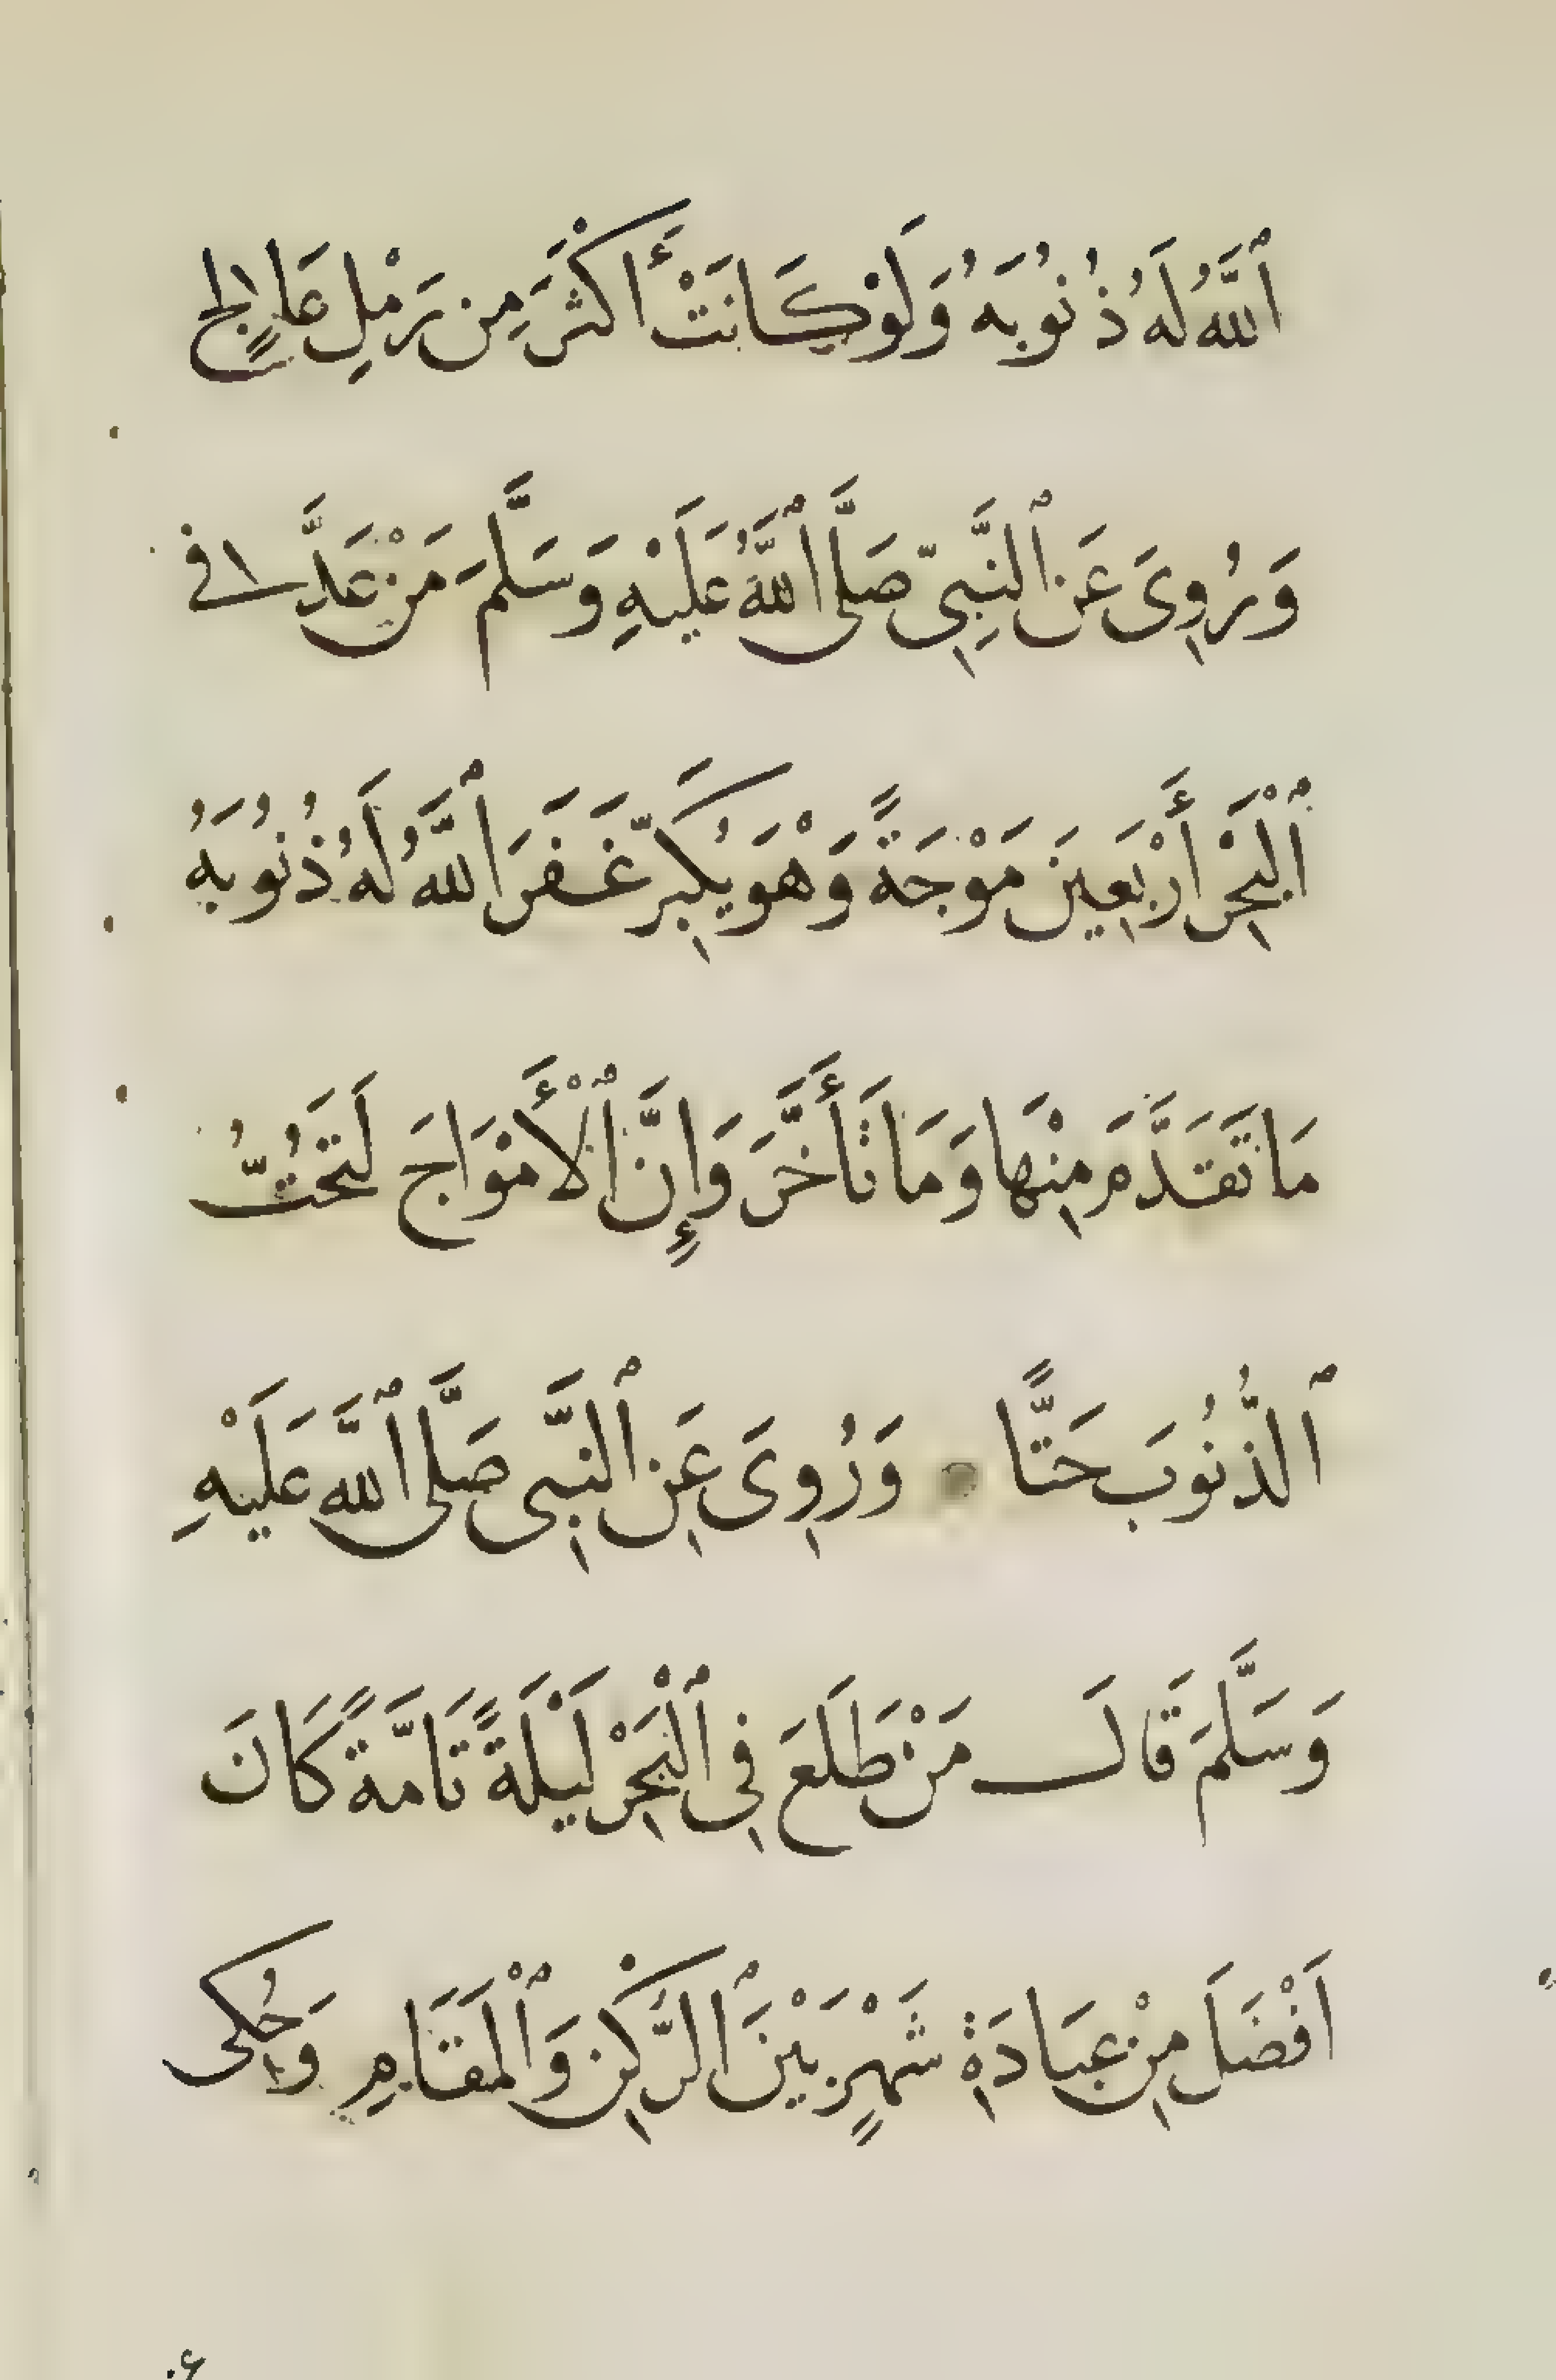 ٱللَّهُ لَهُ ذُنُوبَهُ وَلَوْ كَانَتْ أَكْثَرَ مِن رَمْلِ عَالِجٍ
وَرُوِىَ عَنِ ٱلنَّبِىِّ صَلَّى ٱللَّهُ عَلَيْهِ وَسَلَّمَ مَنْ عَدَّ فى
ٱلْبَحْرِ أَرْبَعِينَ مَوْجَةً وَهْوَ يُكَبِّر غَفَرَ ٱللَّهُ لَهُ ذُنُوبَهُ
مَا تَقَدَّمَ مِنْهَا وَمَا تَأَخَّرَ وَإِنَّ ٱلْأَمْوَاجَ لَتَحُتُّ
ٱلذُّنُوبَ حَتًّا وَرُوِىَ عَنِ ٱلنَّبِى صَلَّى ٱللَّه عَلَيْهِ
وَسَلَّمَ قَالَ مَنْ طَلَعَ فِى ٱلْبَحْرِ لَيْلَةً تَامَّةً كَانَ
اَفْضَلَ مِنْ عِبَادَةِ شَهْرٍ بَيْنَ ٱلرُّكْنِ وَٱلْمَقَامِ وَحُكِى